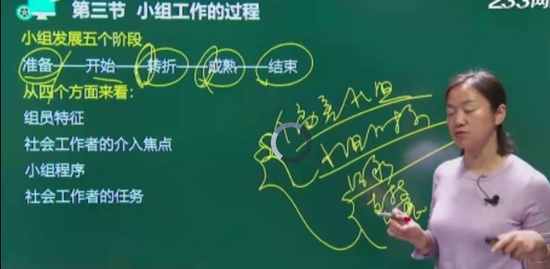 第三节 小组工作的过程
233网
小组发展五个阶段
准备 开始 转折 成熟 结束
从四个方面来看：
组员特征
社会工作者的介入焦点
小组程序
社会工作者的任务